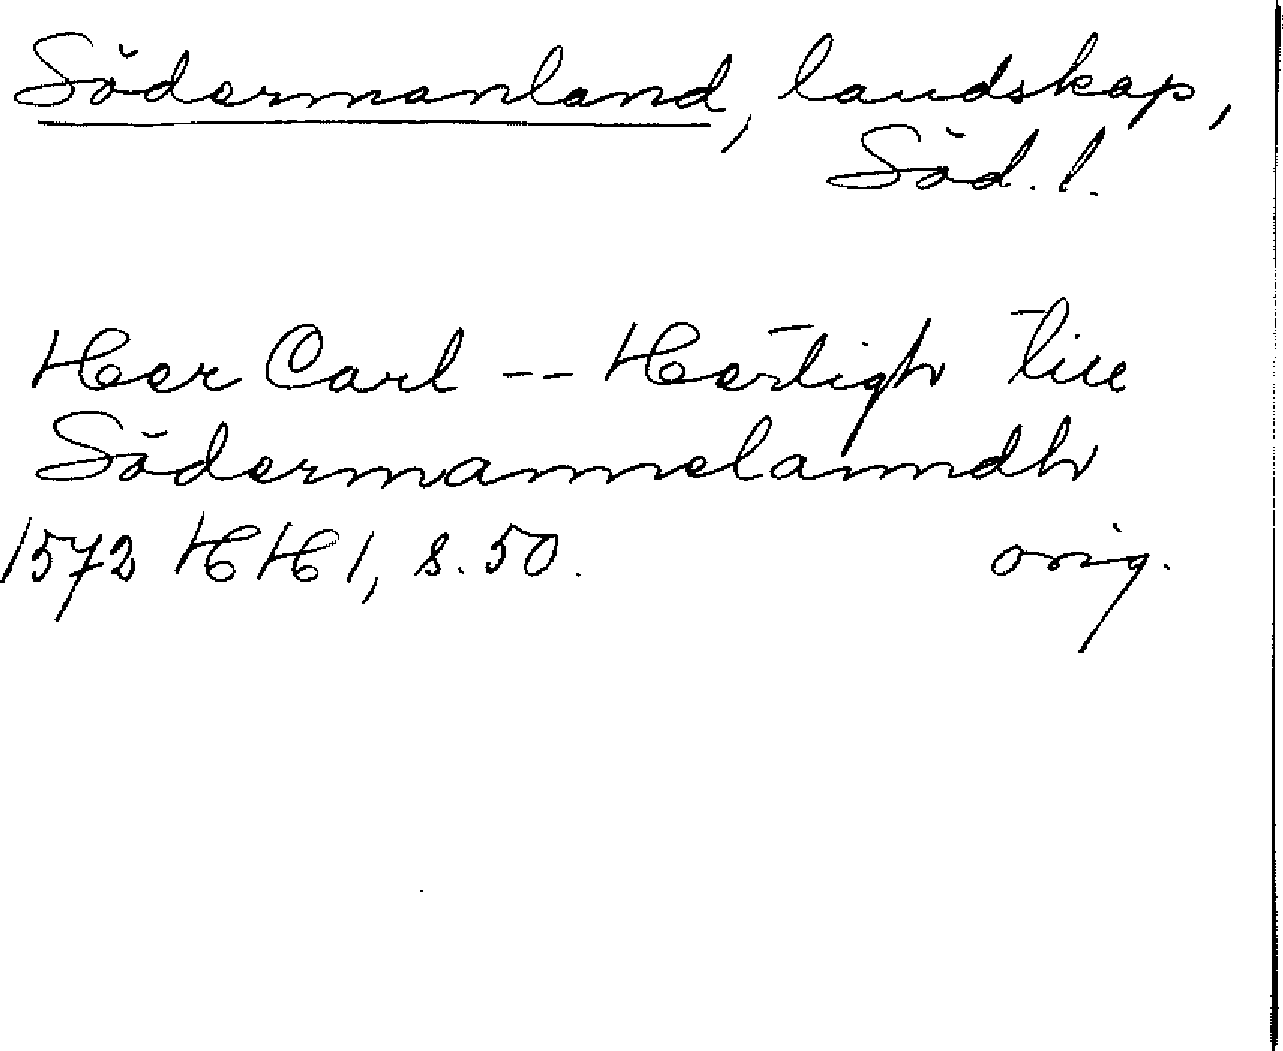 Södermanland, landskap,
Söd. l.
Her Carl -- Hertigh till
Södermannelanndh
1572 HH 1, s. 50. orig.